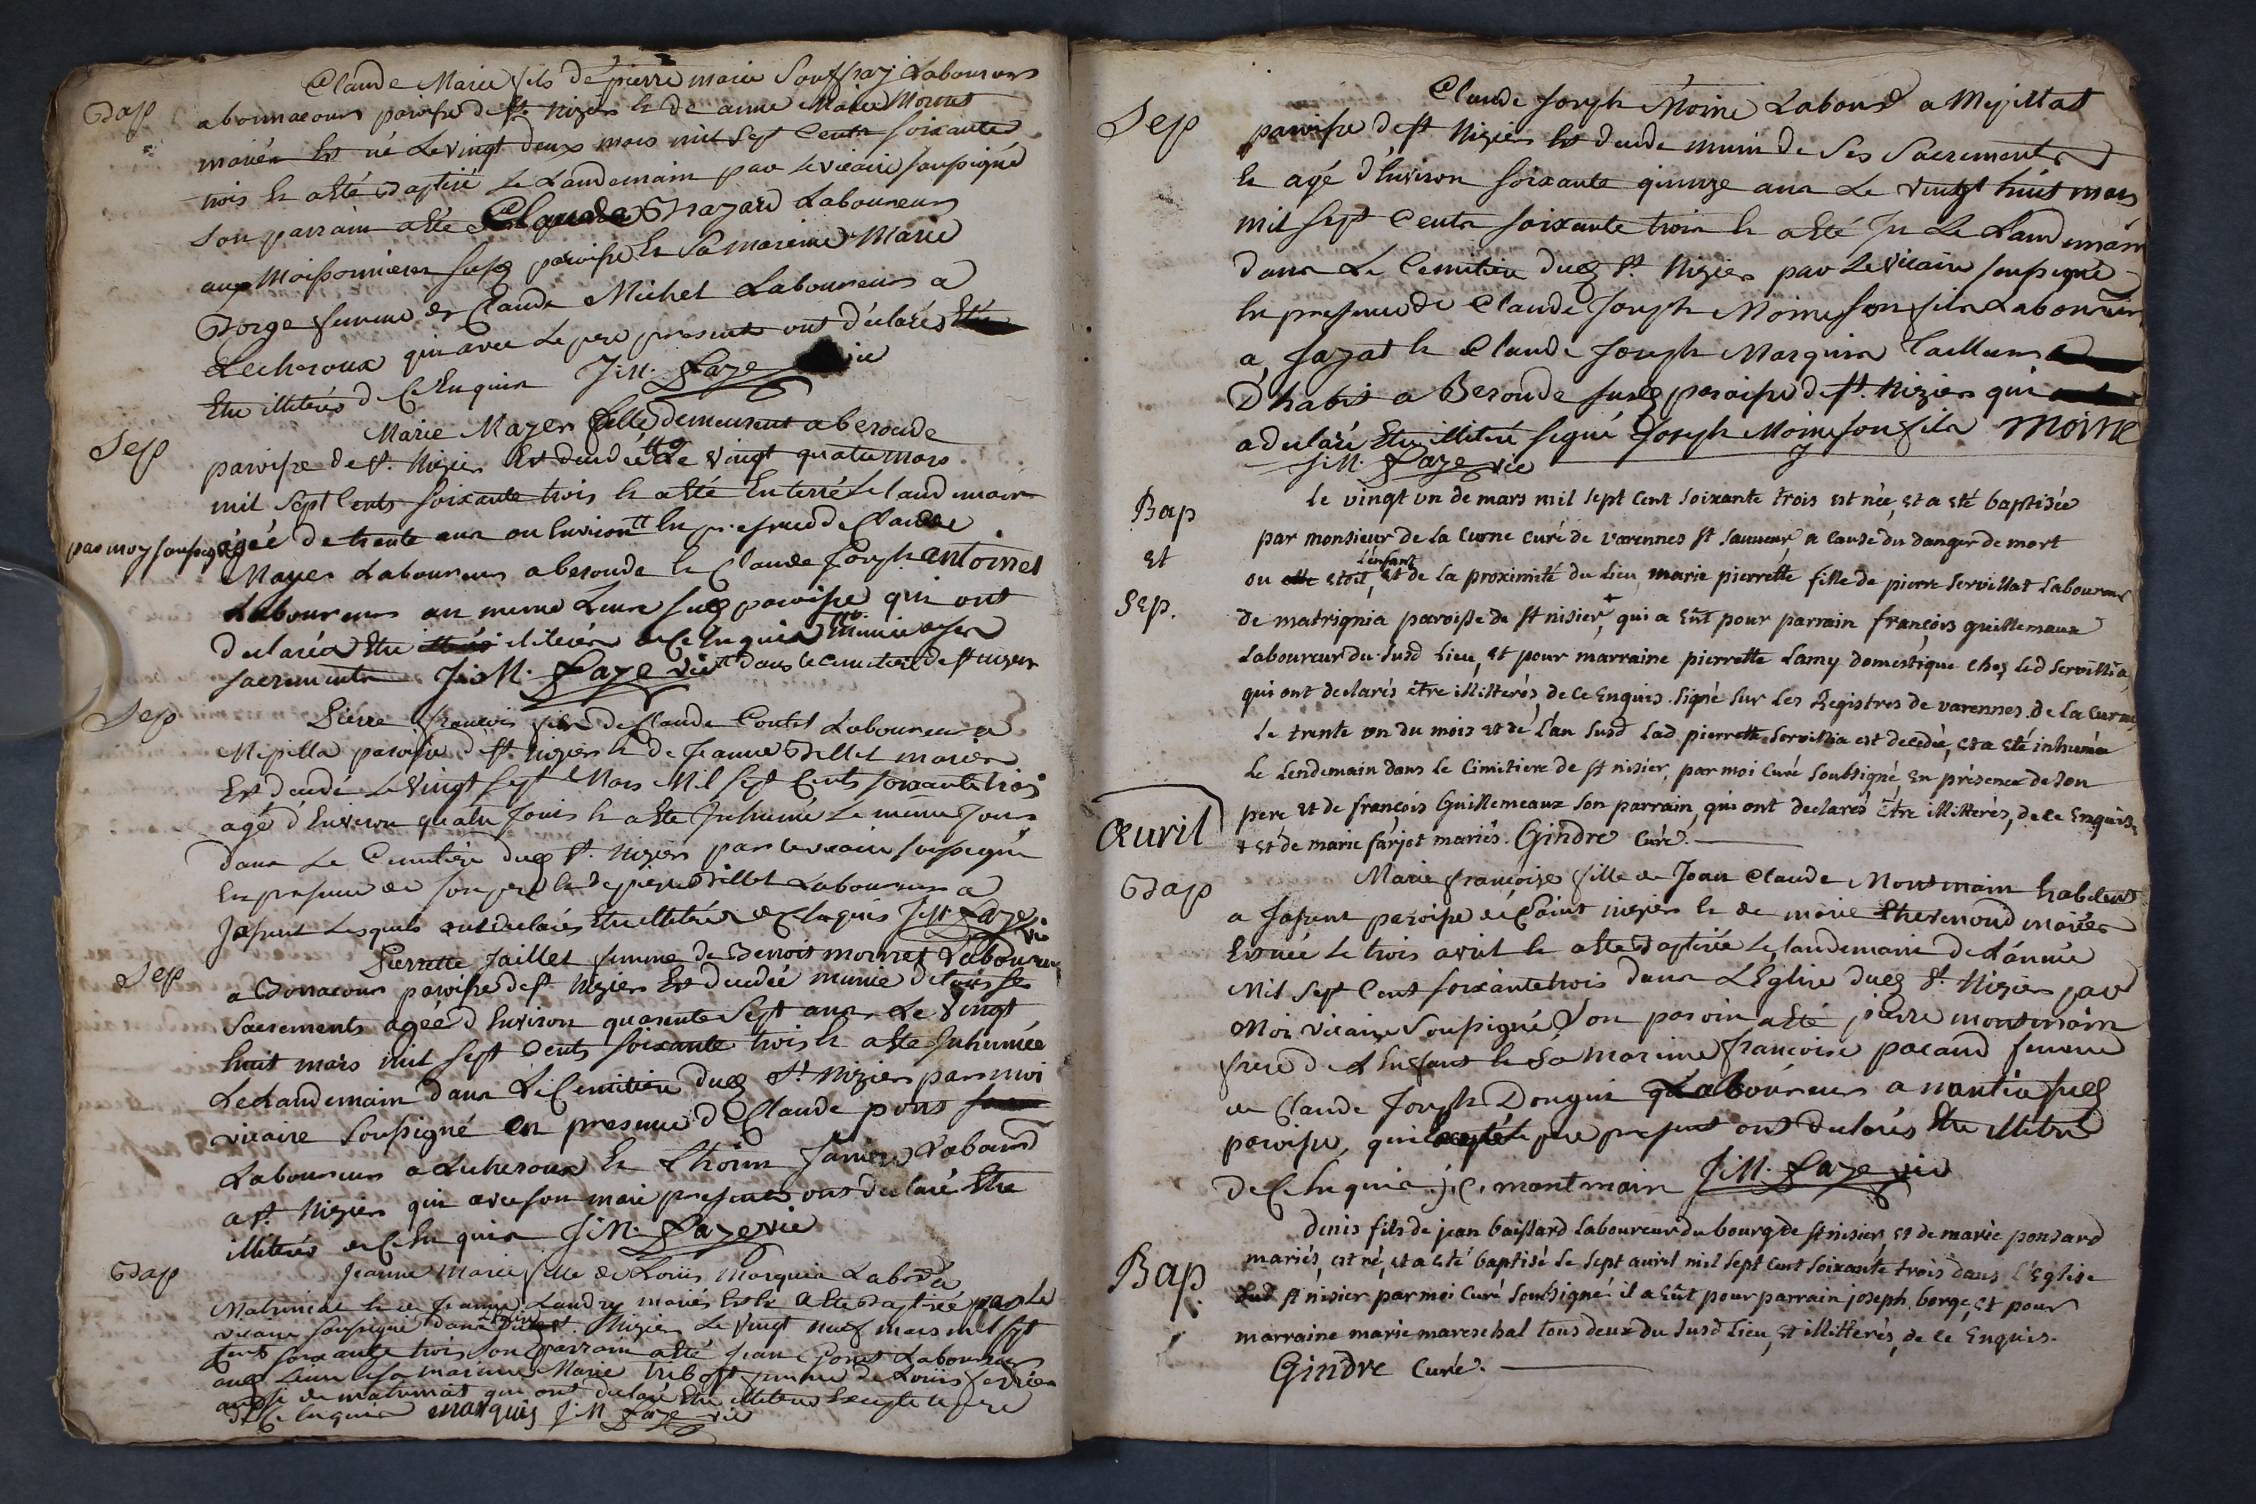 Claude Marie fils de pierre marie Laboureur
Bap
a bonnacours paroisse de st. Nizier et de anne Marie Moiret
mariés est né Le vingt deux mars mil sept Cents soixante
trois et a été Baptisé Le Landemain par Le vicaire soussigné
son parrain a été Claude Chazard Laboureur
aux Moissonnieres susd paroisse et sa mareine Marie
Borge femme de Claude Michel Laboureur a
Lecheroux qui avec Le pere present ont déclarés
Etre illiterés de Ce Enquis J:M: Faze vic
Sep
Marie Mayer fille demeurent a beroude
paroisse de st. Nizier Est decedée Le vingt quatre mars
mil sept Cents soixante trois et a été Enterré Le Landemain
par moy soussigné
agée de trente ans ou Environ En presence de Claude
Mayer Laboureur a beroude et Claude Joseph antoinet
Laboureur au meme Lieu susd paroisse qui ont
declarés Etre illiterés de Ce Enquis Munie de ses
sacrements J:M: Faze vic dans le cimetiere de st nizier
Sep
Pierre francois fils de Claude Contet Laboureur a
Mepilla paroisse de st. nizier et de Jeanne Billet mariés
Est decedé Le vingt sept Mars Mil sept Cents soixante trois
agé d'Environ quatre Jours et a été Inhumé Le meme Jour
dans Le Cemitiere dud st. Nizier par le vicaire soussigné
En presence de son pere et de pierre Billet Laboureur a
Jasent Lesquels ont declarés Etre illiterés de Ce Enquis J:M: Faze
vic
Sep
Pierrette Jaillet femme de Benois moiret Laboureur
a Bonacour paroisse de st Nizier Est decedée munie de tous ses
Sacrements agée d'Environ quarente sept ans Le Vingt
huit mars mil sept Cents soixante trois et a été Inhumée
Le Landemain dans Le Cemitiere dud st. Nizier par moi
vicaire soussigné en presence de Claude pont
Laboureur a Lecheroux et Janier Labour
a st. Nizier qui avec son mari presents ont declaré Etre
illiterés de Ce Enquis J:M: Faze vic
Bap
Jeanne Marie fille de Loüis Marquis Labr a
Matrinia et de Jeanne Landry mariés Est et a été Baptisée par Le
vicaire soussigné dans st. Nizier Le vingt neuf mars mil sept
Cents soixante trois son parrain a été Jean pont Laboureur
aud Lieu et sa mareine Marie tribost femme de Louis
aussi de matrinias qui ont declaré Etre illiterés Excepté le pere
de Ce Enquis marquis J:M Faze vic
Sep
Claude Joseph Moine Labour a Mepillat
paroisse de st Nizier Est decedé muni de ses Sacrements
et agé d'Environ soixante quinze ans Le vingt huit mars
mil sept Cents soixante trois et a été In Le Landemain
dans Le Cemitiere dud st. Nizier par Le vicaire soussigné
En presence de Claude Joseph Moine son fils Laboureur
a Jayat et Claude Joseph Marquis Tailleur
D'habit a Beroude susd paroisse de st. Nizier qui
a declaré Etre illiteré signé Joseph Moine son fils moine
J:M: Faze vic
Bap
et
Sep.
le vingt un de mars mil sept cent soixante trois est née, et a été baptisée
par monsieur de la Curne curé de varennes st sauveur a cause du danger de mort
l'enfant
ou elle etoit, et de la proximité du lieu, marie pierrette fille de pierre servillat laboureur
de matrignia paroisse de st nisier +, qui a eut pour parrain françois guillemaux
laboureur du susd lieu, et pour marraine pierrette lamy domestique chez led servillia,
qui ont declarés être illitterés, de ce enquis. signé sur les Registres de varennes. de la curne,
le trente un du mois et de l'an susd lad pierrette servillia est decedée, et a été inhumée
le lendemain dans le cimitiere de st nisier, par moi curé soubsigné en présence de son
pere et de françois Guillemeaux son parrain, qui ont declarés être illitterés, de ce enquis.
+ et de marie farjot mariés. Gindre curé.
Avril
Bap
Marie françoise fille de Jean Claude Montmain habitent
a Jasent paroisse de Saint nizier et de marie thevenoud mariés
Est née Le trois avril et a été Baptisée Le landemain de L'année
Mil sept Cent soixante trois dans L'Eglise dud st. Nizier par
Moi vicaire soussigné son parrin a été pierre montmain
frere de L'Enfant et sa Mareine françoise pacaud femme
de Claude Joseph Donguit Laboureur a nantia sud
paroisse, qui excepté le pere present ont declarés Etre illiteré
De Ce Enquis j: C, montmain J:M: Faze vic
Bap.
Denis fils de jean baissard laboureur du bourg de st nisier, et de marie ponsard
mariés, est né, et a été baptisé le sept avril mil sept cent soixante trois dans l'eglise
dud st nisier par moi curé soubsigné. il a eut pour parrain joseph borge, et pour
marraine marie mareschal tous deux du susd lieu, et illitterés, de ce enquis.
Gindre curé.